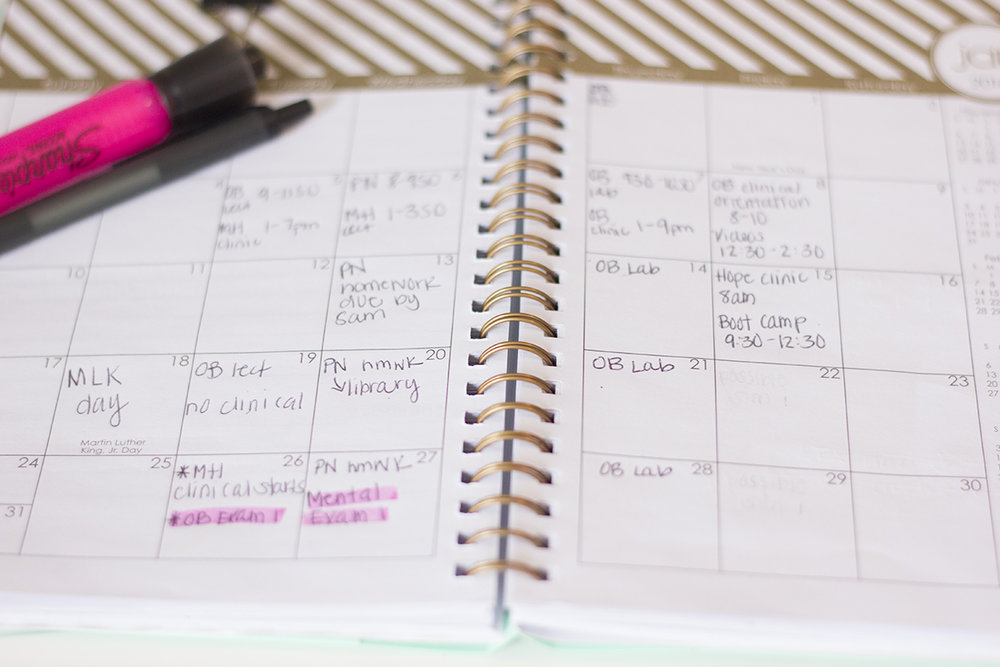 Sharpie
jan
OB 9-1150
lect
MH 1-7pm
clinic
PN 8-950
MH 1-350
lect
OB 830-1030
Lab
OB
clinic 1-9pm
8
OB clinical
orientation
8-10
Videos
12:30-2:30
9
10
11
12
13
PN
homework
due by
5am
14
OB Lab
15
Hope clinic
8am
Boot Camp
9:30-12:30
16
17
18
MLK
day
Martin Luther
King, Jr. Day
19
OB lect
no clinical
20
PN hmwk
library
21
OB Lab
22
23
24
31
25
26
*MH
clinical starts
*OB Exam 1
27
PN hmwk
Mental
Exam 1
28
OB Lab
29
30